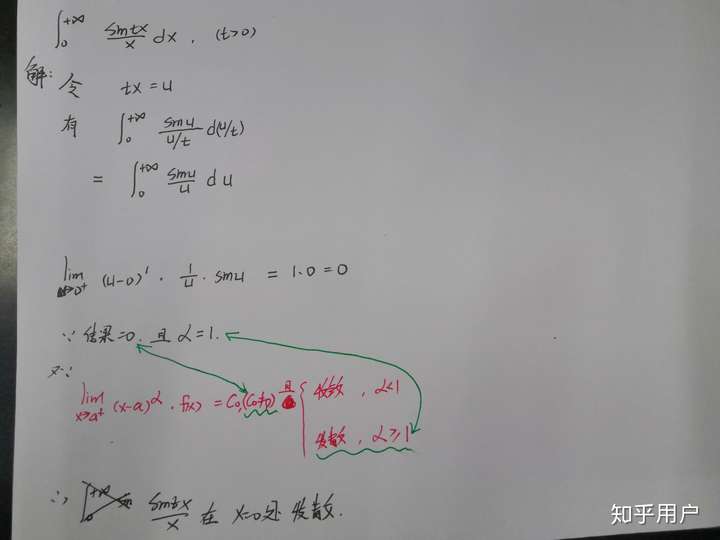 ∫₀^{+∞} sintx/x dx , (t>0)
解: 令 tx = u
有 ∫₀^{+∞} sinu/(u/t) d(u/t)
= ∫₀^{+∞} sinu/u du
lim_{u→0⁺} (u-0)¹ · 1/u · sinu = 1·0 = 0
∵ 结果=0, 且 α=1.
又∵
lim_{x→a⁺} (x-a)^α · f(x) = C₀,(C₀≠0) 且 { 收敛 , α<1
发散 , α≥1
∴ sintx/x 在 x=0处 发散.
知乎用户